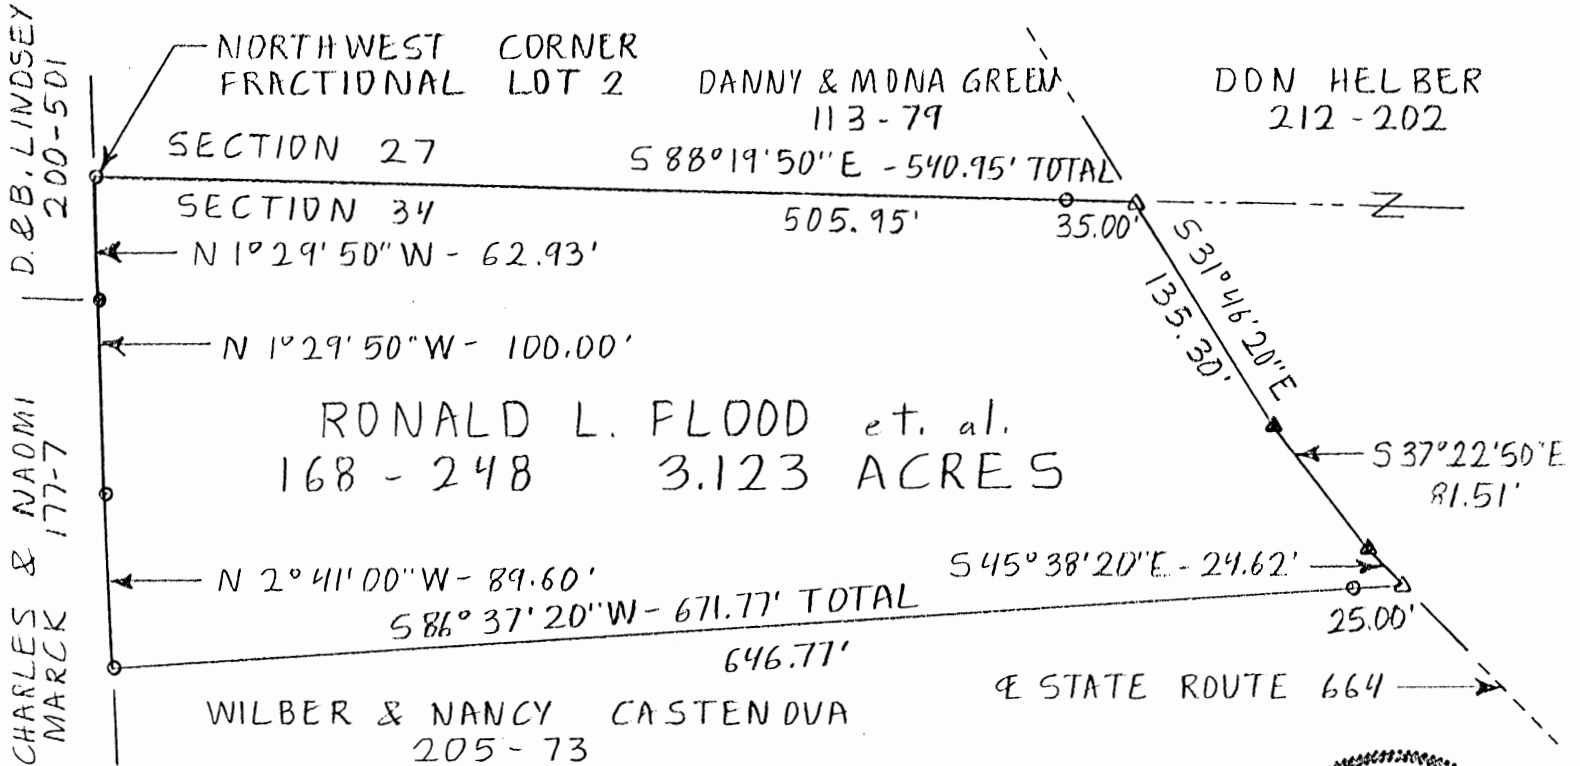 D. & B. LINDSEY
200-501
NORTHWEST CORNER
FRACTIONAL LOT 2
DANNY & MONA GREEN
113-79
DON HELBER
212-202
SECTION 27
S 88°19'50"E - 540.95' TOTAL
SECTION 34
505.95'
35.00'
N 1°29'50"W - 62.93'
S 31°46'20"E
135.30'
N 1°29'50"W - 100.00'
RONALD L. FLOOD et. al.
168 - 248 3.123 ACRES
S 37°22'50"E
81.51'
CHARLES & NAOMI
MARCK 177-7
N 2°41'00"W - 89.60'
S 45°38'20"E - 24.62'
S 86°37'20"W - 671.77' TOTAL
646.77'
25.00'
℄ STATE ROUTE 664
WILBER & NANCY CASTENOVA
205 - 73